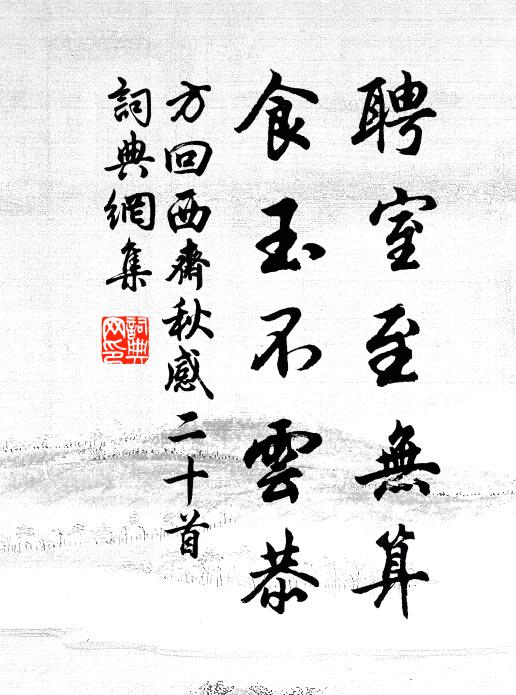 聘室至無算
食玉不雲恭
方回西齋秋感二十首
詞典網集
詞典
网印